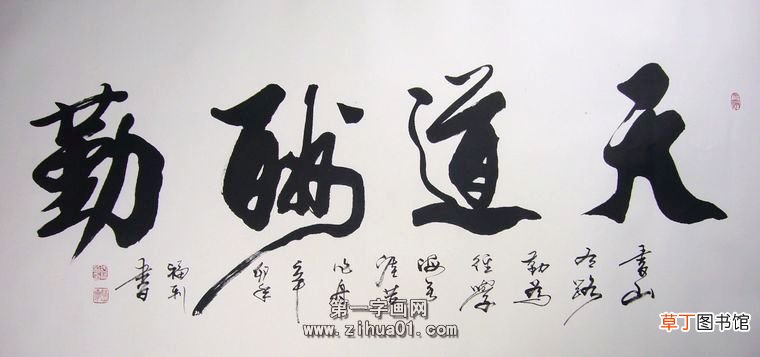 天道酬勤
書山
有路
勤為
徑學
海無
涯苦
作舟
辛
卯年
書
第一字画网
www.zihua01.com
草丁图书馆